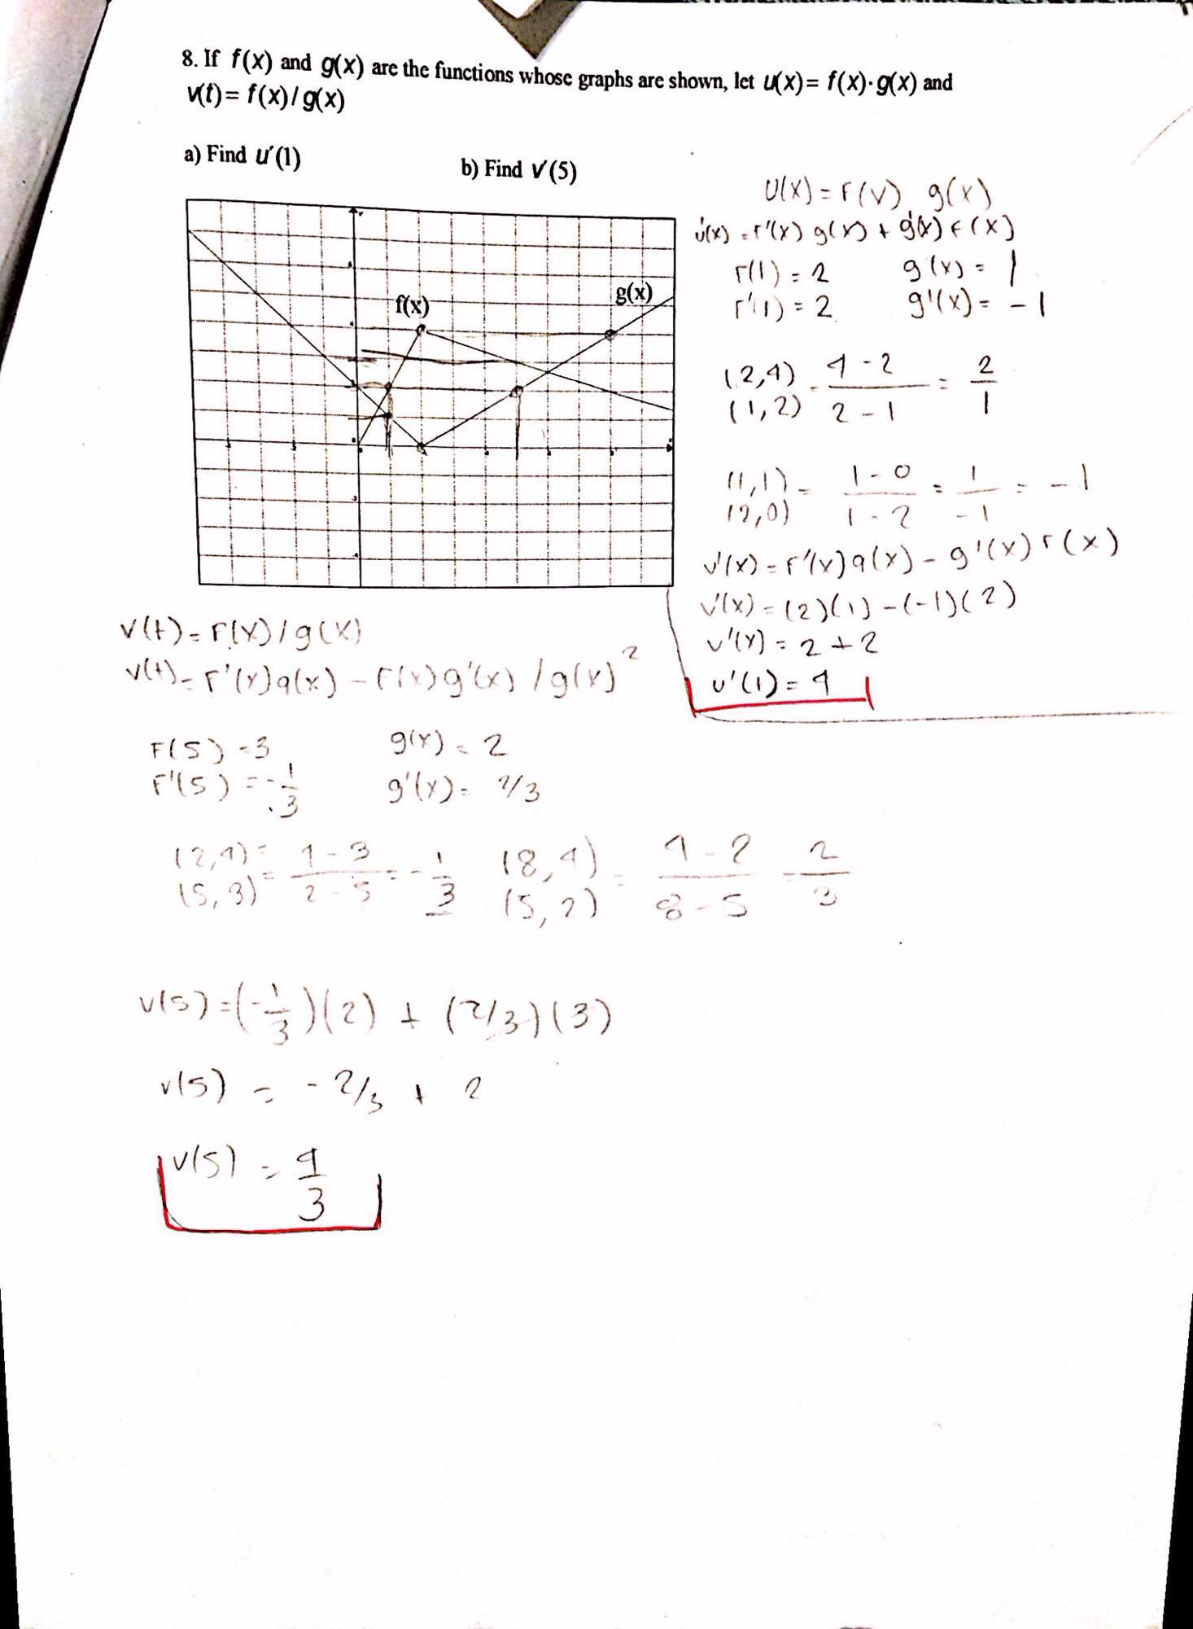 8. If f(x) and g(x) are the functions whose graphs are shown, let u(x)= f(x)·g(x) and
v(t)= f(x)/g(x)
a) Find u′(1)
b) Find v′(5)
f(x)
g(x)
U(x) = f(x) . g(x)
u'(x) = f'(x) g(x) + g'(x) f(x)
f(1) = 2 g(x) = 1
f'(1) = 2 g'(x) = -1
(2,4) = 4-2 / 2-1 = 2/1
(1,2)
(1,1) = 1-0 / 1-2 = 1/-1 = -1
(2,0)
v'(x) = f'(x)g(x) - g'(x) f(x)
v'(x) = (2)(1) - (-1)(2)
v'(x) = 2 + 2
u'(1) = 4
v(t) = f(x)/g(x)
v(t) = f'(x)g(x) - f(x)g'(x) / g(x)²
F(5) = 3 g(x) = 2
F'(5) = -1/3 g'(x) = 2/3
(2,4) = 4-3 / 2-5 = -1/3 (8,4) = 4-2 / 8-5 = 2/3
(5,3) = (5,2)
v(5) = (-1/3)(2) + (2/3)(3)
v(5) = -2/3 + 2
v(5) = 4/3